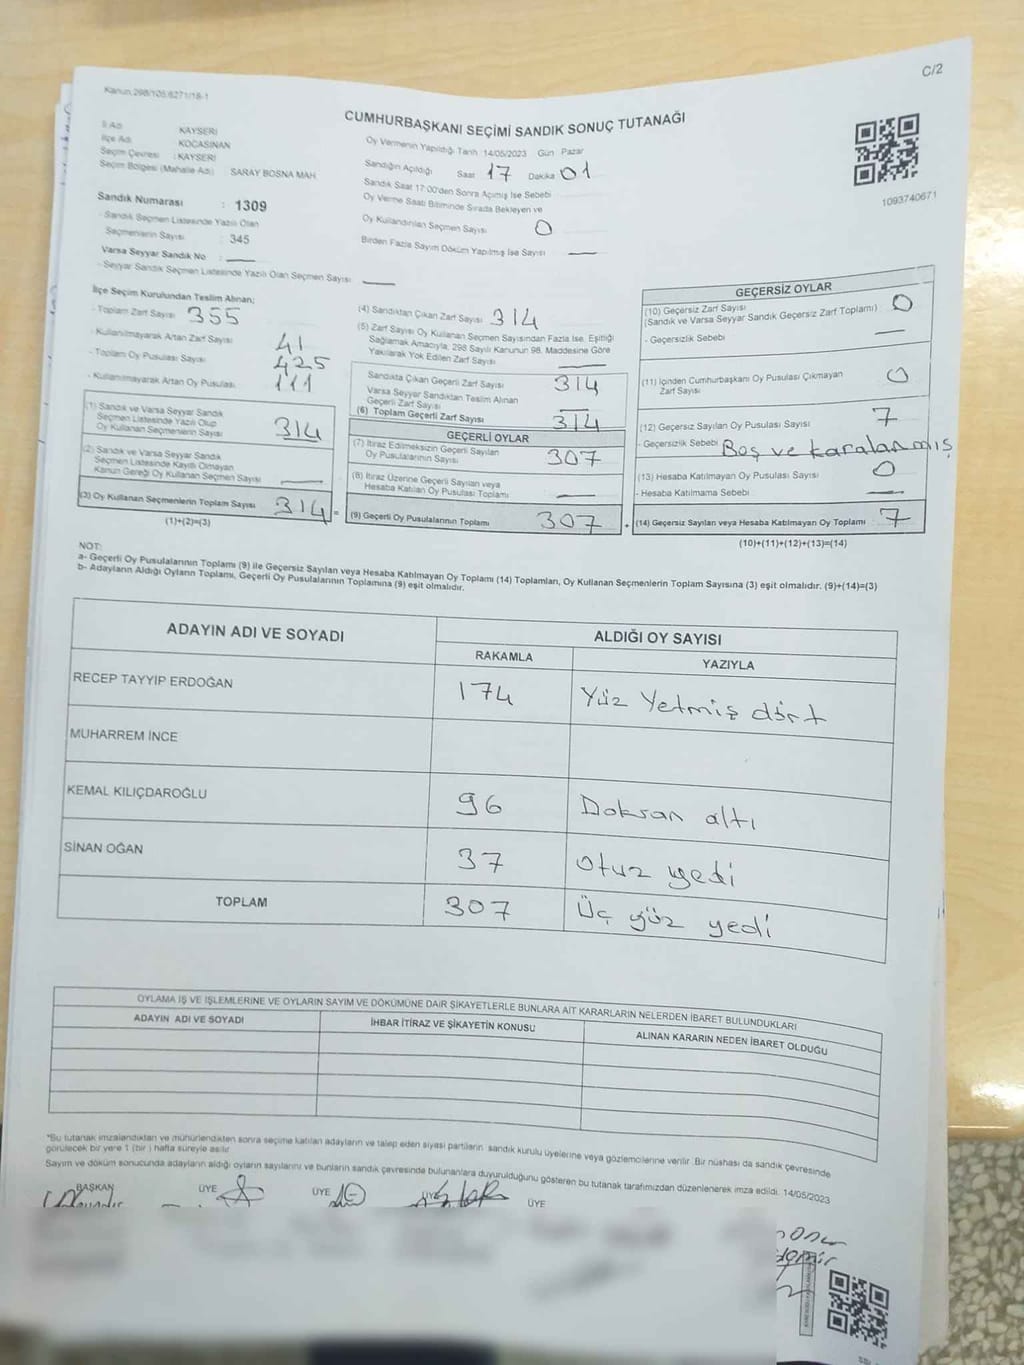 C/2
Kanun 298/105,6271/18-1
CUMHURBAŞKANI SEÇİMİ SANDIK SONUÇ TUTANAĞI
1093740671
İl Adı KAYSERİ
İlçe Adı KOCASİNAN
Seçim Çevresi : KAYSERİ
Seçim Bölgesi (Mahalle Adı) SARAY BOSNA MAH.
Sandık Numarası : 1309
- Sandık Seçmen Listesinde Yazılı Olan
Seçmenlerin Sayısı : 345
Varsa Seyyar Sandık No : —
- Seyyar Sandık Seçmen Listesinde Yazılı Olan Seçmen Sayısı —
Oy Vermenin Yapıldığı Tarih 14/05/2023 Gün Pazar
Sandığın Açıldığı Saat 17 Dakika 01
Sandık Saat 17:00'den Sonra Açılmış İse Sebebi
Oy Verme Saati Bitiminde Sırada Bekleyen ve
Oy Kullandırılan Seçmen Sayısı 0
Birden Fazla Sayım Döküm Yapılmış İse Sayısı —
İlçe Seçim Kurulundan Teslim Alınan;
- Toplam Zarf Sayısı 355
- Kullanılmayarak Artan Zarf Sayısı 41
- Toplam Oy Pusulası Sayısı 425
- Kullanılmayarak Artan Oy Pusulası 111
(1) Sandık ve Varsa Seyyar Sandık
Seçmen Listesinde Yazılı Olup
Oy Kullanan Seçmenlerin Sayısı 314
(2) Sandık ve Varsa Seyyar Sandık
Seçmen Listesinde Kayıtlı Olmayan
Kanun Gereği Oy Kullanan Seçmen Sayısı —
(3) Oy Kullanan Seçmenlerin Toplam Sayısı 314 =
(1)+(2)=(3)
(4) Sandıktan Çıkan Zarf Sayısı 314
(5) Zarf Sayısı Oy Kullanan Seçmen Sayısından Fazla İse, Eşitliği
Sağlamak Amacıyla; 298 Sayılı Kanunun 98. Maddesine Göre
Yakılarak Yok Edilen Zarf Sayısı —
Sandıkta Çıkan Geçerli Zarf Sayısı 314
Varsa Seyyar Sandıktan Teslim Alınan
Geçerli Zarf Sayısı —
(6) Toplam Geçerli Zarf Sayısı 314
GEÇERLİ OYLAR
(7) İtiraz Edilmeksizin Geçerli Sayılan
Oy Pusulalarının Sayısı 307
(8) İtiraz Üzerine Geçerli Sayılan veya
Hesaba Katılan Oy Pusulası Toplamı —
(9) Geçerli Oy Pusulalarının Toplamı 307 +
GEÇERSİZ OYLAR
(10) Geçersiz Zarf Sayısı
(Sandık ve Varsa Seyyar Sandık Geçersiz Zarf Toplamı) 0
- Geçersizlik Sebebi —
(11) İçinden Cumhurbaşkanı Oy Pusulası Çıkmayan
Zarf Sayısı 0
(12) Geçersiz Sayılan Oy Pusulası Sayısı 7
- Geçersizlik Sebebi Boş ve karalanmış
(13) Hesaba Katılmayan Oy Pusulası Sayısı 0
- Hesaba Katılmama Sebebi —
(14) Geçersiz Sayılan veya Hesaba Katılmayan Oy Toplamı 7
(10)+(11)+(12)+(13)=(14)
NOT:
a- Geçerli Oy Pusulalarının Toplamı (9) ile Geçersiz Sayılan veya Hesaba Katılmayan Oy Toplamı (14) Toplamları, Oy Kullanan Seçmenlerin Toplam Sayısına (3) eşit olmalıdır. (9)+(14)=(3)
b- Adayların Aldığı Oyların Toplamı, Geçerli Oy Pusulalarının Toplamına (9) eşit olmalıdır.
ADAYIN ADI VE SOYADI ALDIĞI OY SAYISI
RAKAMLA YAZIYLA
RECEP TAYYİP ERDOĞAN 174 Yüz Yetmiş dört
MUHARREM İNCE
KEMAL KILIÇDAROĞLU 96 Doksan altı
SİNAN OĞAN 37 otuz yedi
TOPLAM 307 Üç yüz yedi
OYLAMA İŞ VE İŞLEMLERİNE VE OYLARIN SAYIM VE DÖKÜMÜNE DAİR ŞİKAYETLERLE BUNLARA AİT KARARLARIN NELERDEN İBARET BULUNDUKLARI
ADAYIN ADI VE SOYADI İHBAR İTİRAZ VE ŞİKAYETİN KONUSU ALINAN KARARIN NEDEN İBARET OLDUĞU
*Bu tutanak imzalandıktan ve mühürlendikten sonra seçime katılan adayların ve talep eden siyasi partilerin sandık kurulu üyelerine veya gözlemcilerine verilir. Bir nüshası da sandık çevresinde
görülecek bir yere 1 (bir ) hafta süreyle asılır.
Sayım ve döküm sonucunda adayların aldığı oyların sayılarını ve bunların sandık çevresinde bulunanlara duyurulduğunu gösteren bu tutanak tarafımızdan düzenlenerek imza edildi. 14/05/2023
BAŞKAN ÜYE ÜYE ÜYE ÜYE